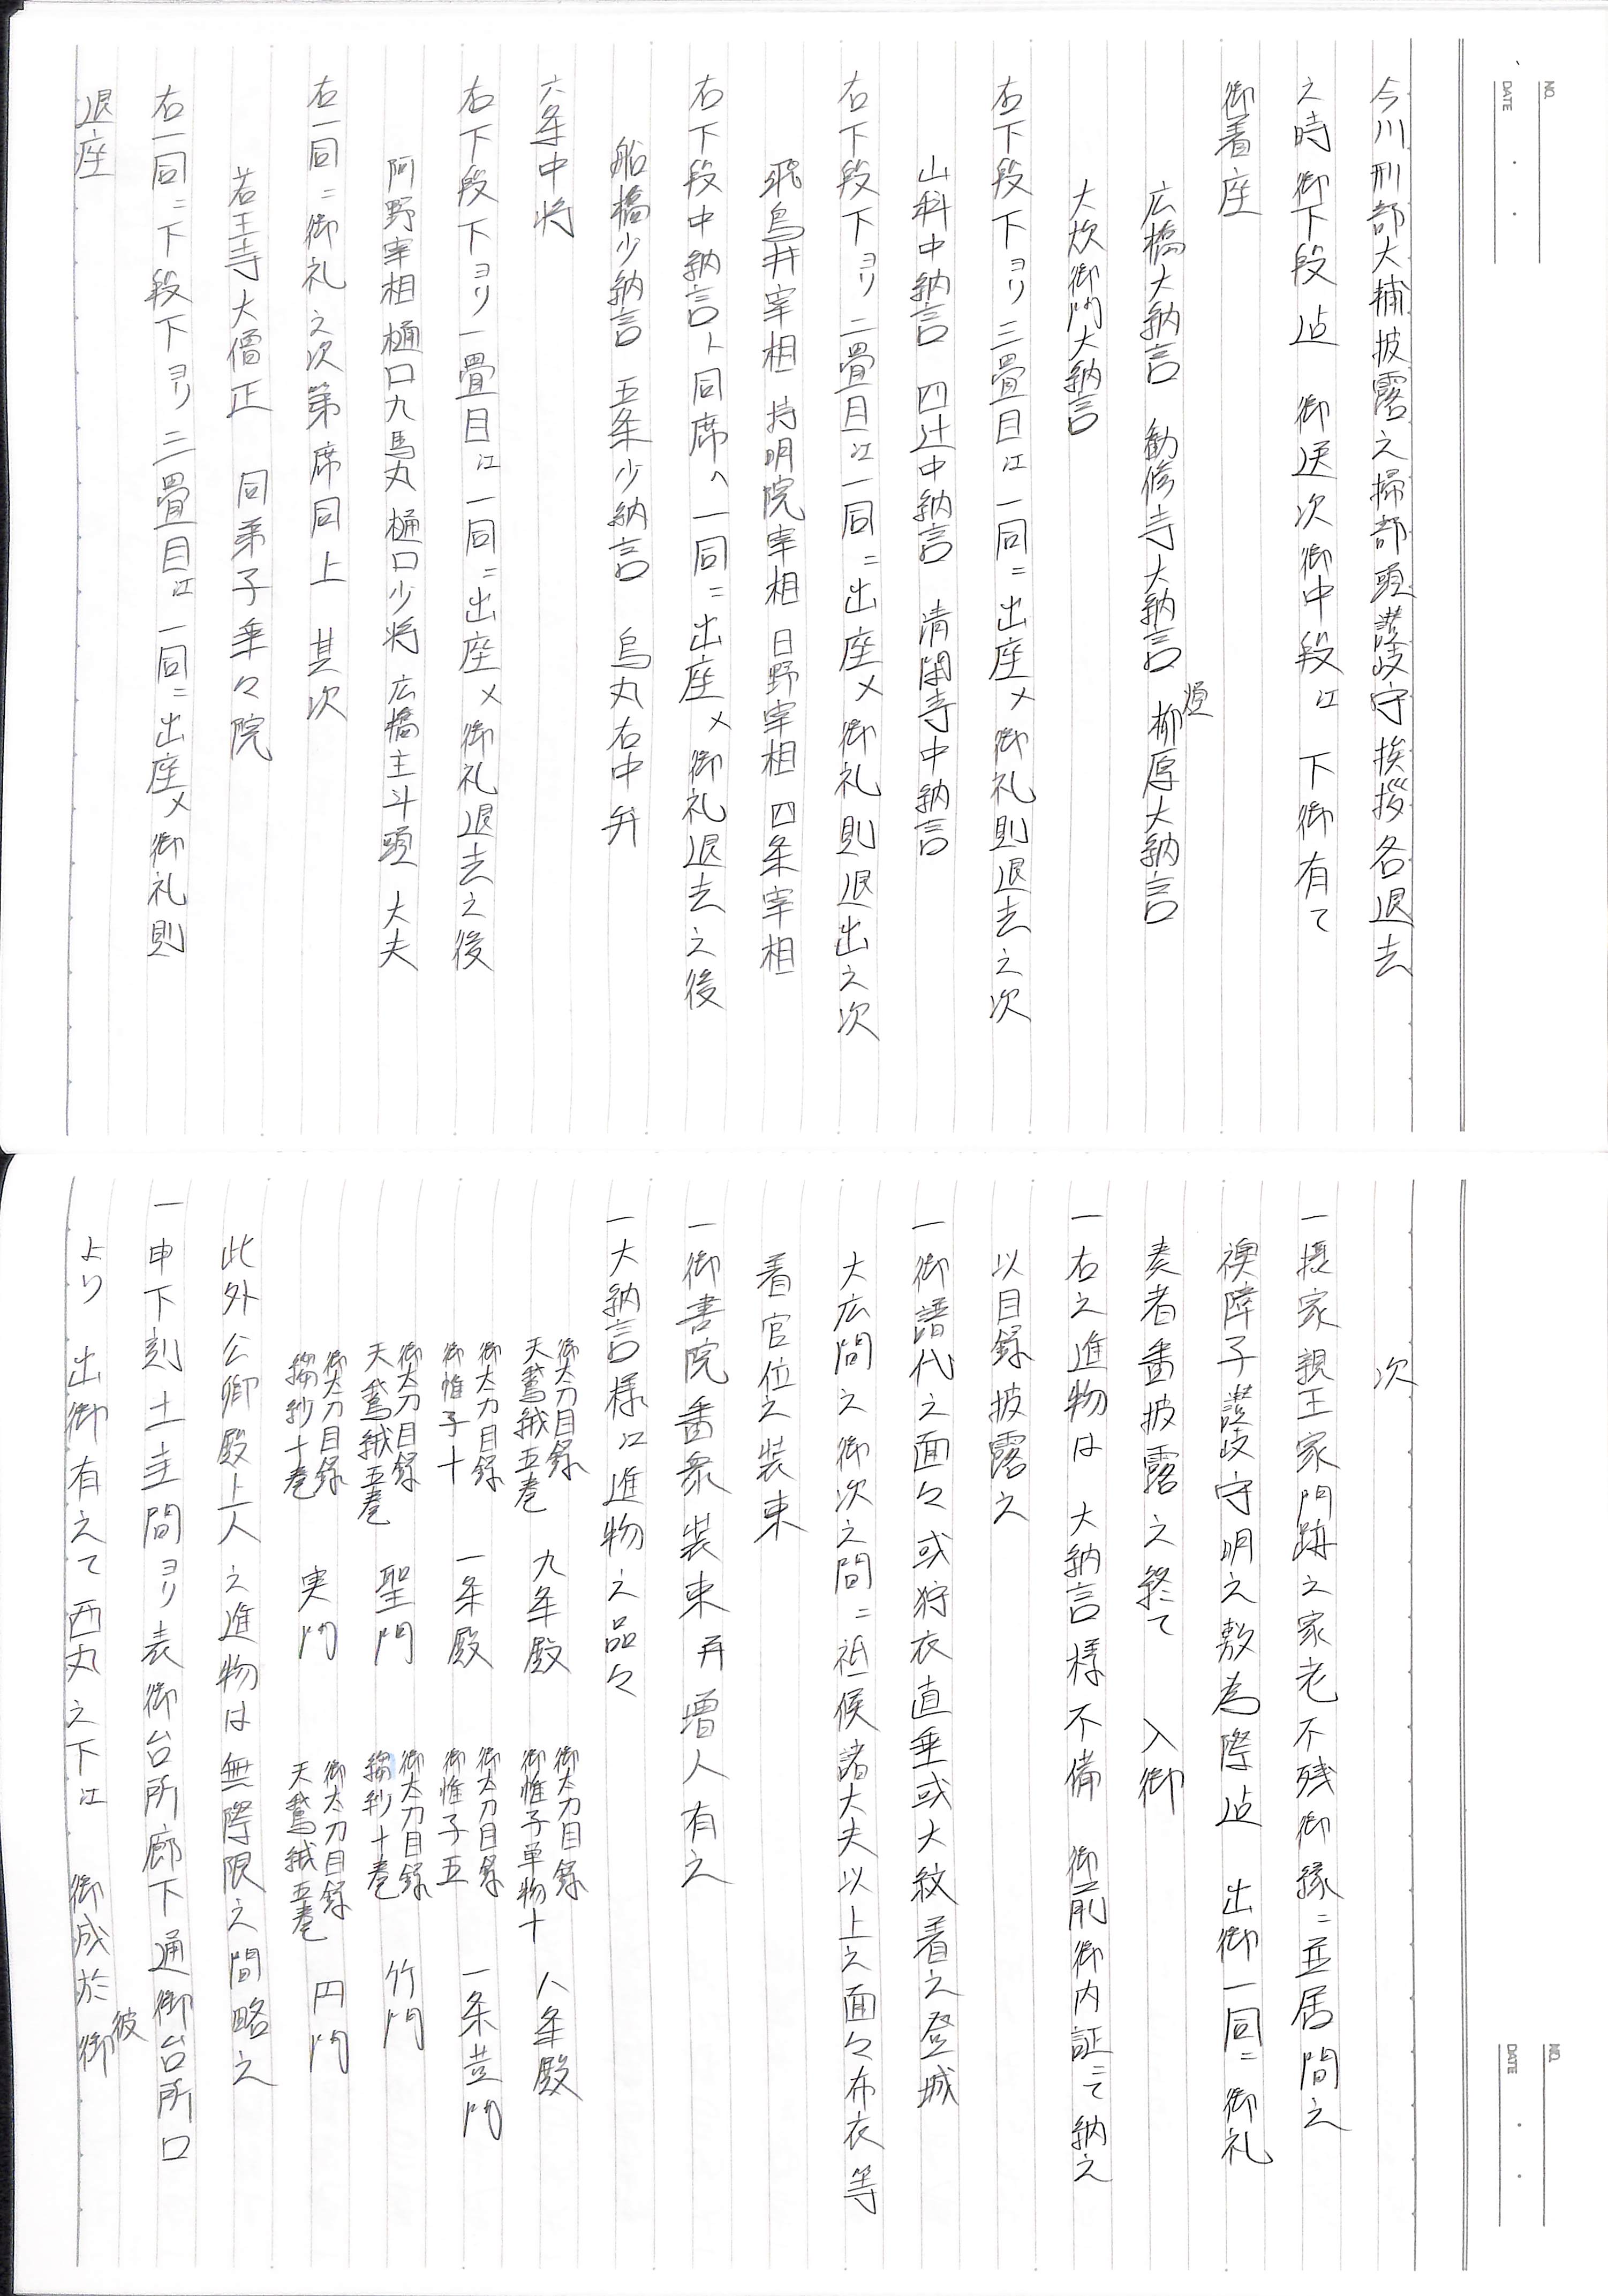 NO.
DATE
今川刑部大輔披露之掃部頭讃岐守挨拶各退去
之時御下段迠 御送次御中段江 下御有て
御着座
広橋大納言 勧修寺大納言 柳原大納言
大炊御門大納言
右下段下ヨリ三畳目江一同ニ出座〆御礼則退去之次
山科中納言 四辻中納言 清閑寺中納言
右下段下ヨリ二畳目江一同ニ出座〆御礼則退出之次
飛鳥井宰相 持明院宰相 日野宰相 四条宰相
右下段中納言ト同席へ一同ニ出座〆御礼退去之後
船橋少納言 五条少納言 烏丸右中弁
六条中将
右下段下ヨリ一畳目江一同ニ出座〆御礼退去之後
阿野宰相 樋口九馬丸 樋口少将 広橋主斗頭 大夫
右一同ニ御礼之次第席同上 其次
若王寺大僧正 同弟子乗々院
右一同ニ下段下ヨリ三畳目江一同ニ出座〆御礼則
退座
NO.
DATE
次
一摂家親王家門跡之家老不残御縁ニ並居間之
襖障子讃岐守明之敷為際迠 出御一同ニ御礼
奏者番披露之終て 入御
一右之進物は 大納言様不備 御前御内証ニて納之
以目録披露之
一御譜代之面々或狩衣直垂或大紋着之登城
大広間之御次之間ニ祗候諸大夫以上之面々布衣等
着官位之装束
一御書院番衆装束再増人有之
一大納言様江進物之品々
御太刀目録
天鵞絨五巻 九条殿
御太刀目録
御惟子単物十 八条殿
御太刀目録
御惟子十 一条殿
御太刀目録
御惟子五 一条芸門
御太刀目録
天鵞絨五巻 聖門
御太刀目録
縐紗十巻 竹門
御太刀目録
縐紗十巻 実門
御太刀目録
天鵞絨五巻 円門
此外公卿殿上人之進物は無際限之間略之
一申下刻土圭間ヨリ表御台所廊下通御台所口
より 出御有之て西丸之下江 御成於彼御